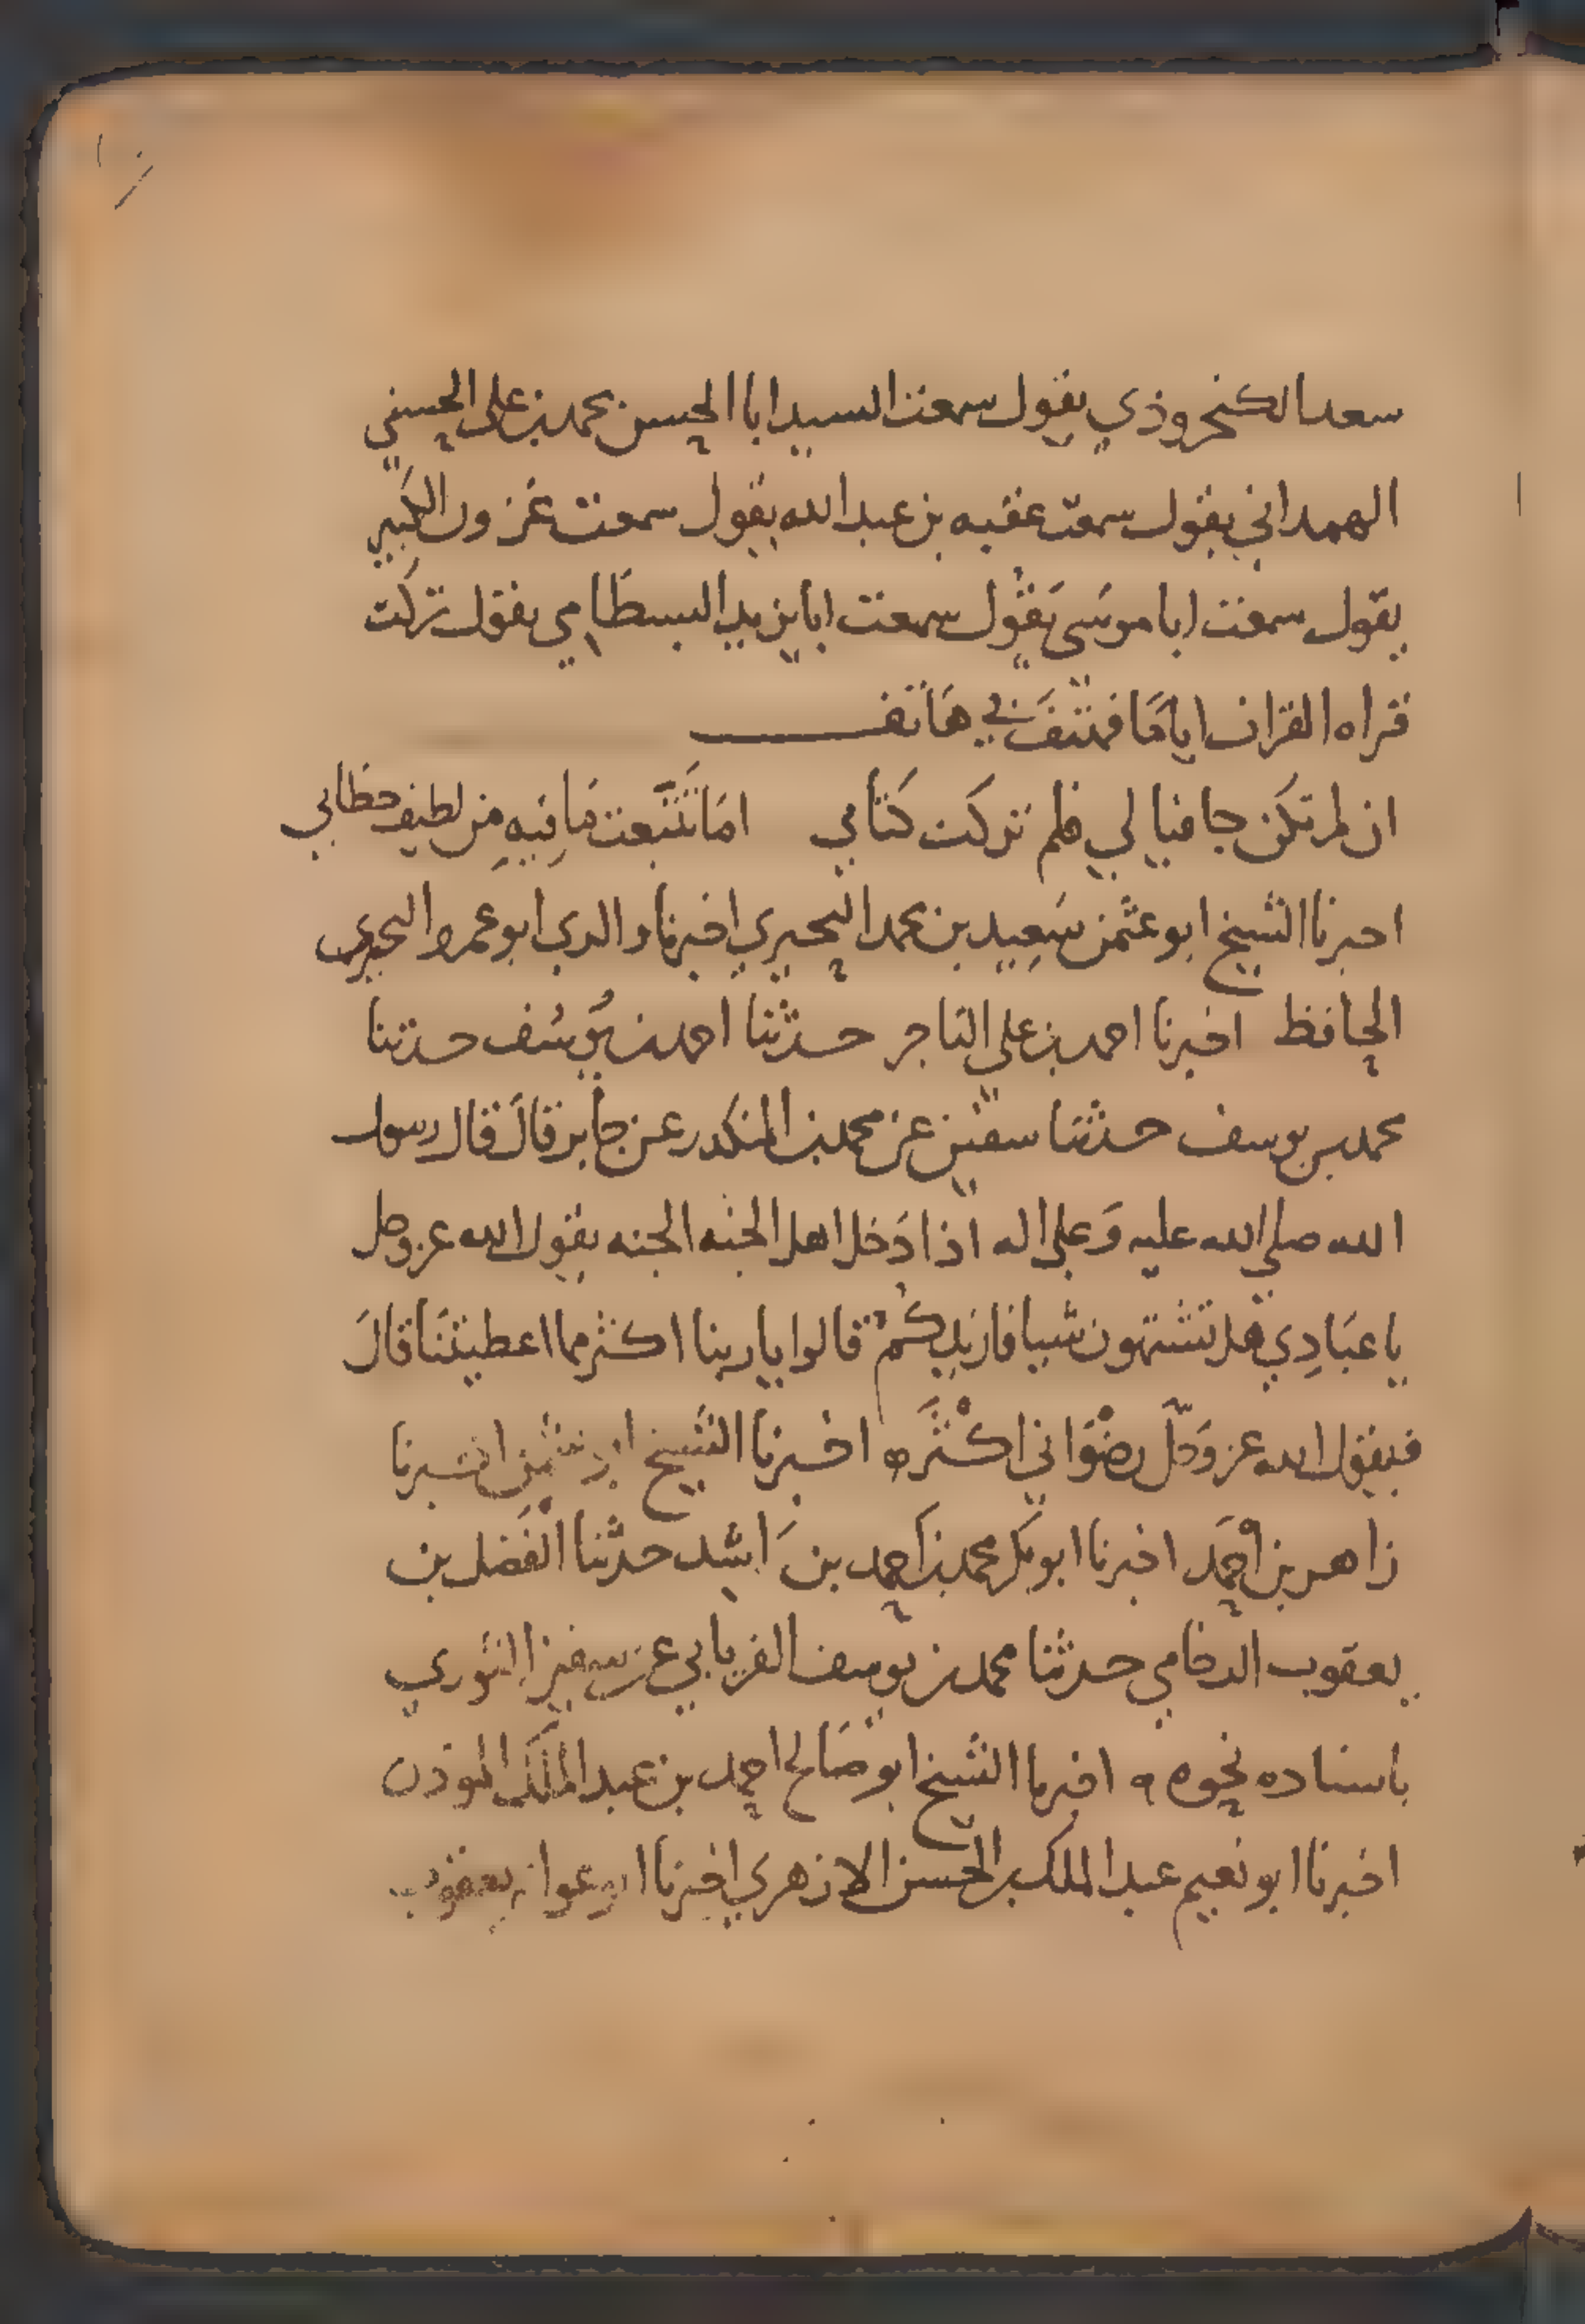 سعد الكنجروذي يقول سمعت السيد ابا الحسن محمد بن علي الحسني
الهمداني يقول سمعت عقبه بن عبد الله يقول سمعت عزون الكبير
يقول سمعت ابا موسَى يَقُول سمعت ابا يزيد البسطَامي يقول تركت
قراه القران ايامًا فهتف بي هَاتف
ان لم تكن جافيا لي فلم تركت كتابي اما تتبعت مَا فيهِ من لطيف خطابي
اخبرنا الشيخ ابو عثمن سَعِيد بن محمد البحيري اخبرنا والدي ابو عمرو البحيري
الحافظ اخبرنا احمد بن علي التاجر حدثنا احمد بن يُوسُف حدثنا
محمد بن يوسف حدثنا سفين عن محمد بن المنكدر عن جابر قالَ قال رسول
الله صلي الله عليه وَعلى اله اذا دَخل اهل الجنه الجنه يقول الله عز وجل
يا عبَادِي هل تشتهون شيا فازيدكمْ قالوا يا ربنا اكثر مما اعطيتنَا قالَ
فيقول الله عز وَجلّ رضْوَاني اكثَر ه اخبرنا الشيخ ابو عثمن اخبرنا
زاهر بن احمَد اخبرنا ابو بكر محمد بن احمد بن اسَد حدثنا الفَضل بن
يعقوب الرخامي حدثنا محمد بن يوسف الفريابي عن سفين الثوري
باسناده نحوه ه اخبرنا الشيخ ابو صَالح احمد بن عبد الملك الموذن
اخبرنا ابو نعيم عبد الملك بن الحسن الازهري اخبرنا ابو عوانه يعقوب